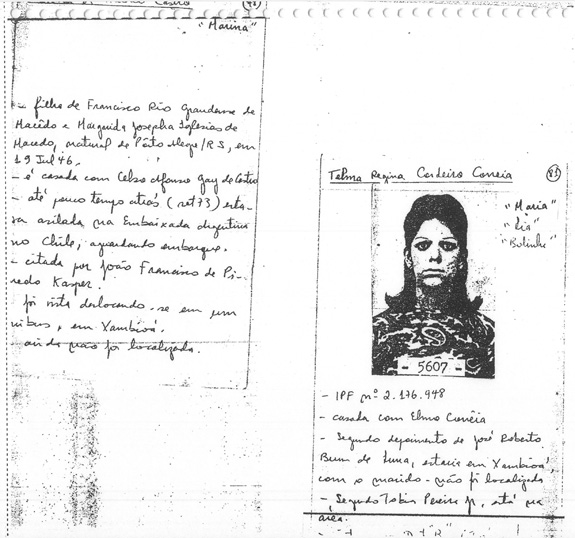 Castro (78)
"Marina"
- filha de Francisco Rio Grandense de
Macêdo e Marguida Josepha Iglesias de
Macedo, natural de Pôrto Alegre/RS, em
19 Jul 46.
- é casada com Celso Afonso Gay de Castro
- até pouco tempo atrás (set 73) esta-
va asilada na Embaixada Argentina
no Chile, aguardando embarque.
- citada por João Francisco de Pi-
nedo Kasper.
foi vista deslocando-se em um
nibus, em Xambioá.
- ainda não foi localizada.
Telma Regina Cordeiro Correia
"Maria"
"Lia"
"Bolinha"
5607
- IPF nº 2.176.948
- casada com Elmo Corrêia
- Segundo depoimento de José Roberto
Brum de Luna, estaria em Xambioá,
com o marido - não foi localizada
- Segundo Tobias Pereira Jr, está na
área.